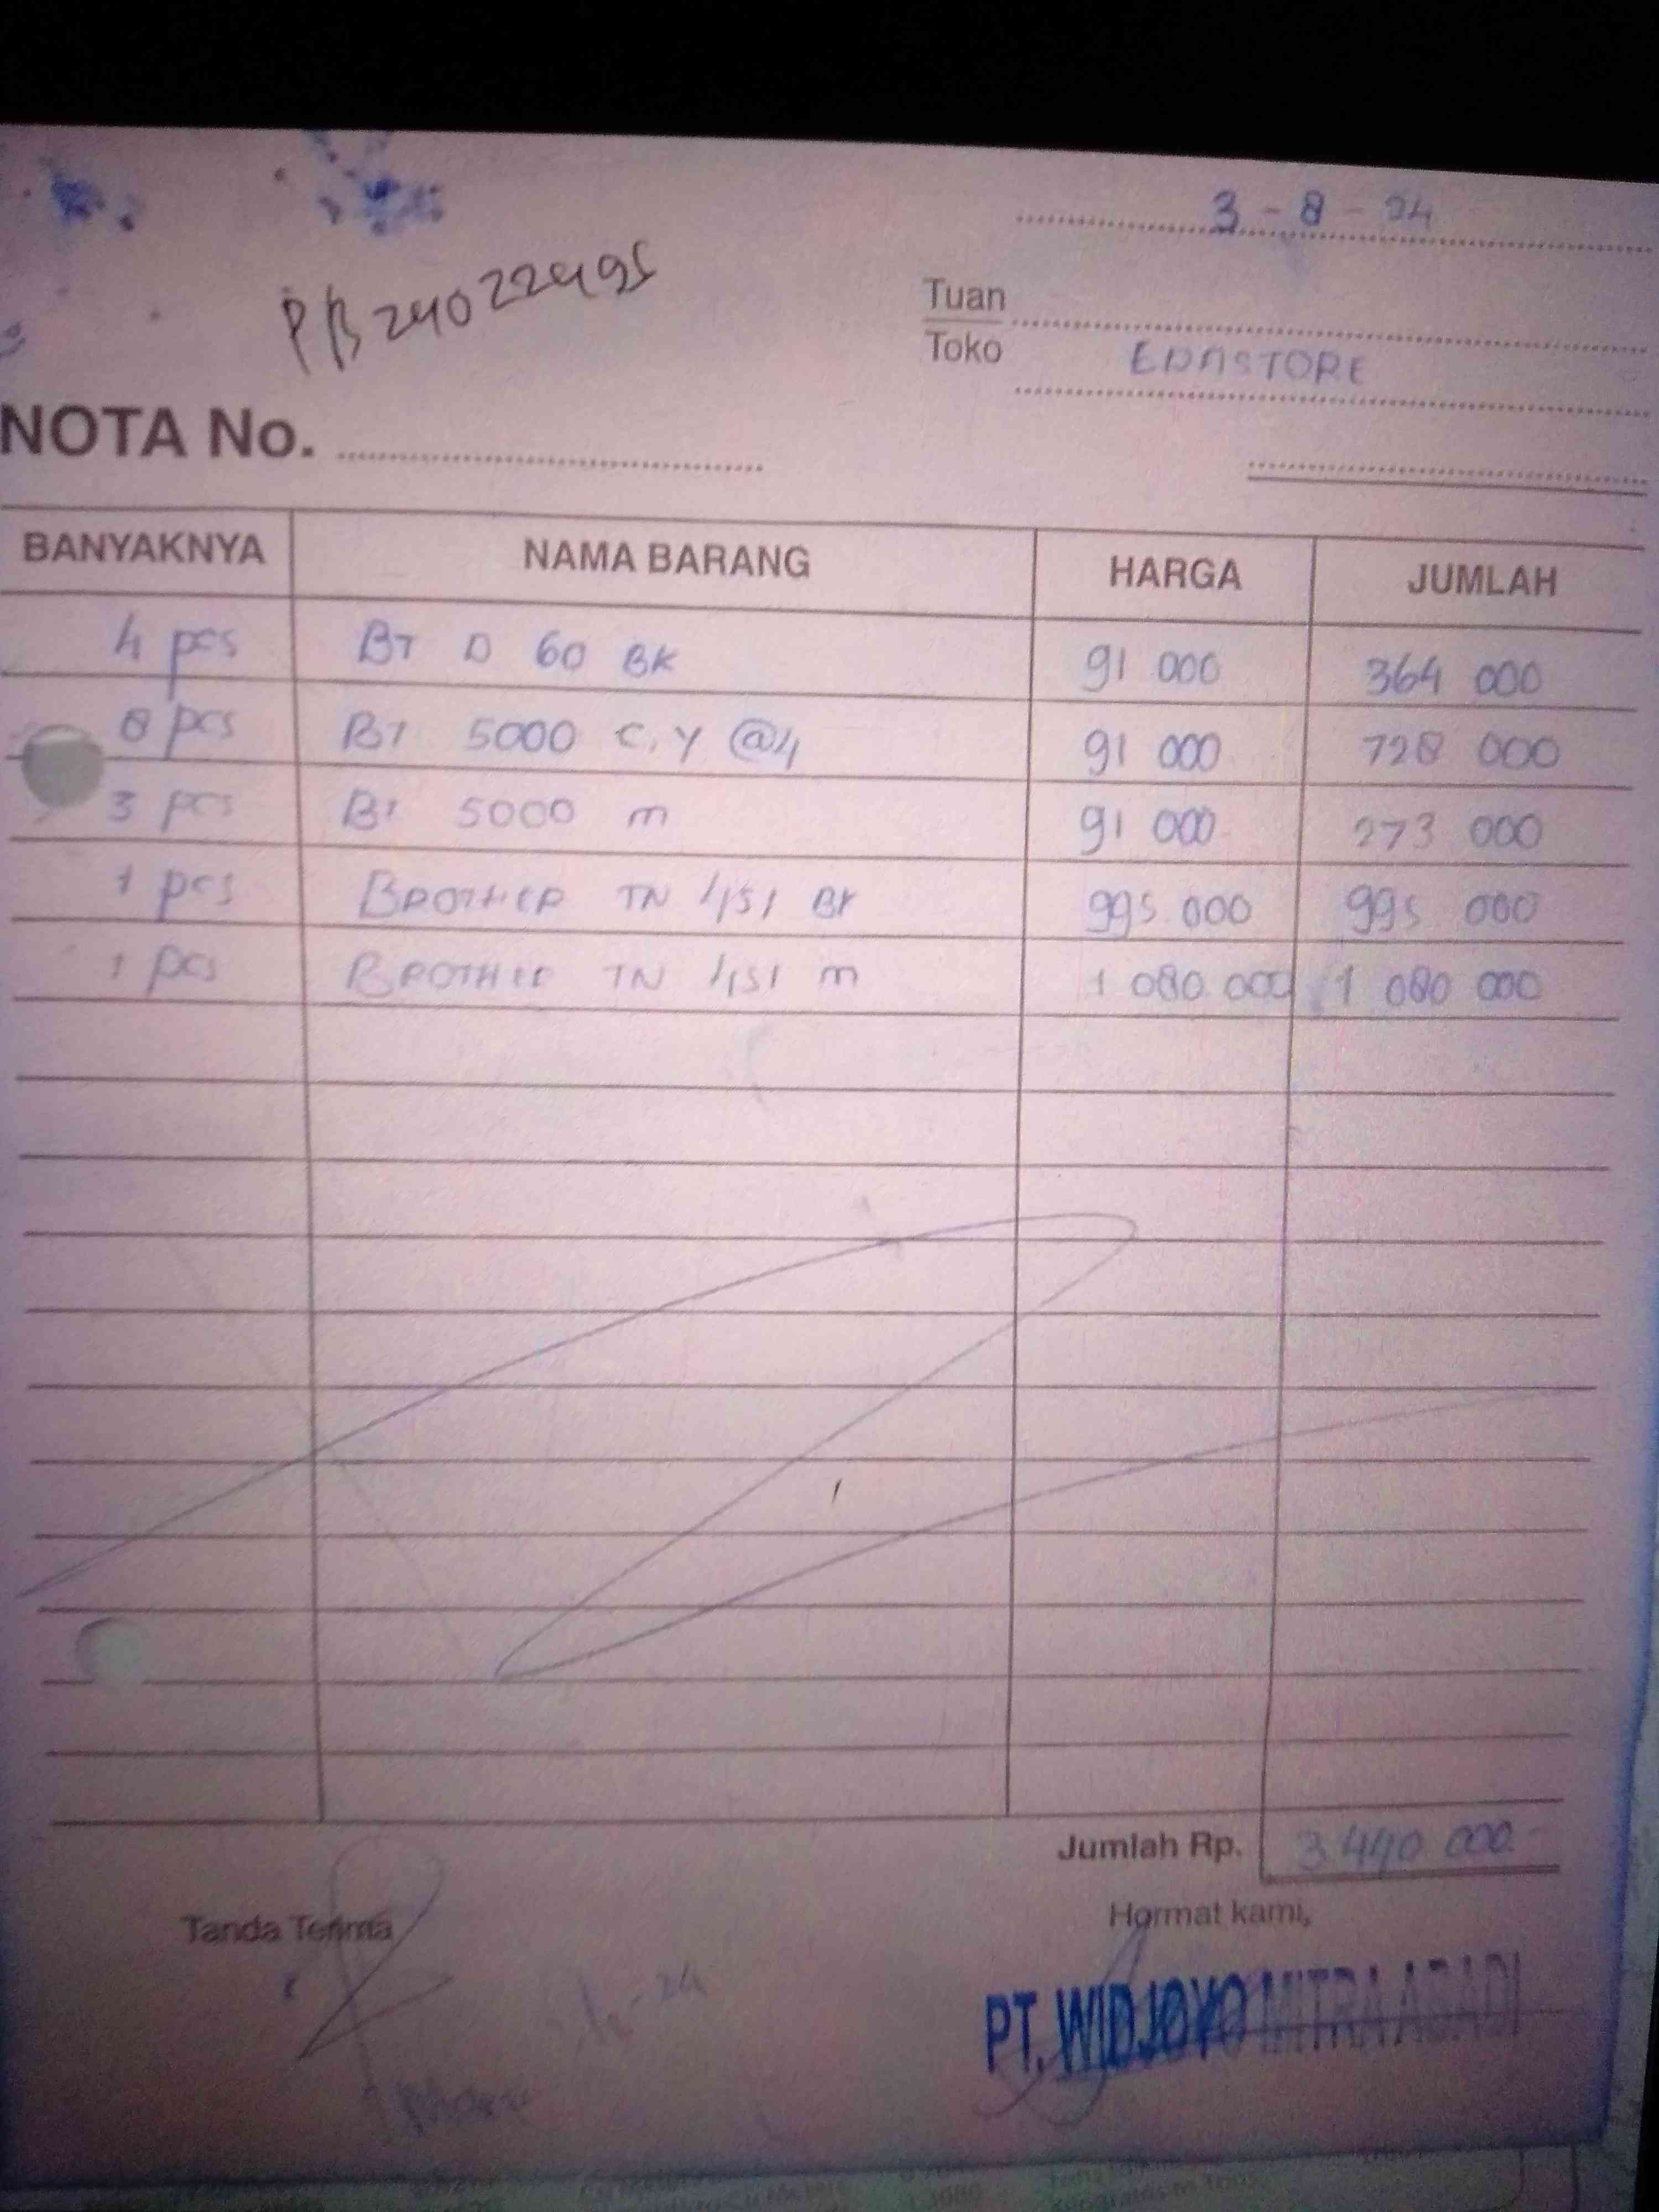 3 - 8 - 24
PB24022495
Tuan
Toko EDASTORE
NOTA No.
BANYAKNYA NAMA BARANG HARGA JUMLAH
4 pcs BT D 60 BK 91 000 364 000
8 pcs BT 5000 C, Y @4 91 000 728 000
3 pcs BT 5000 m 91 000 273 000
1 pcs BROTHER TN 451 BK 995 000 995 000
1 pcs BROTHER TN 451 m 1 080 000 1 080 000
Jumlah Rp. 3 440 000 -
Tanda Terima Hormat kami,
PT. WIDJOYO MITRA ABADI